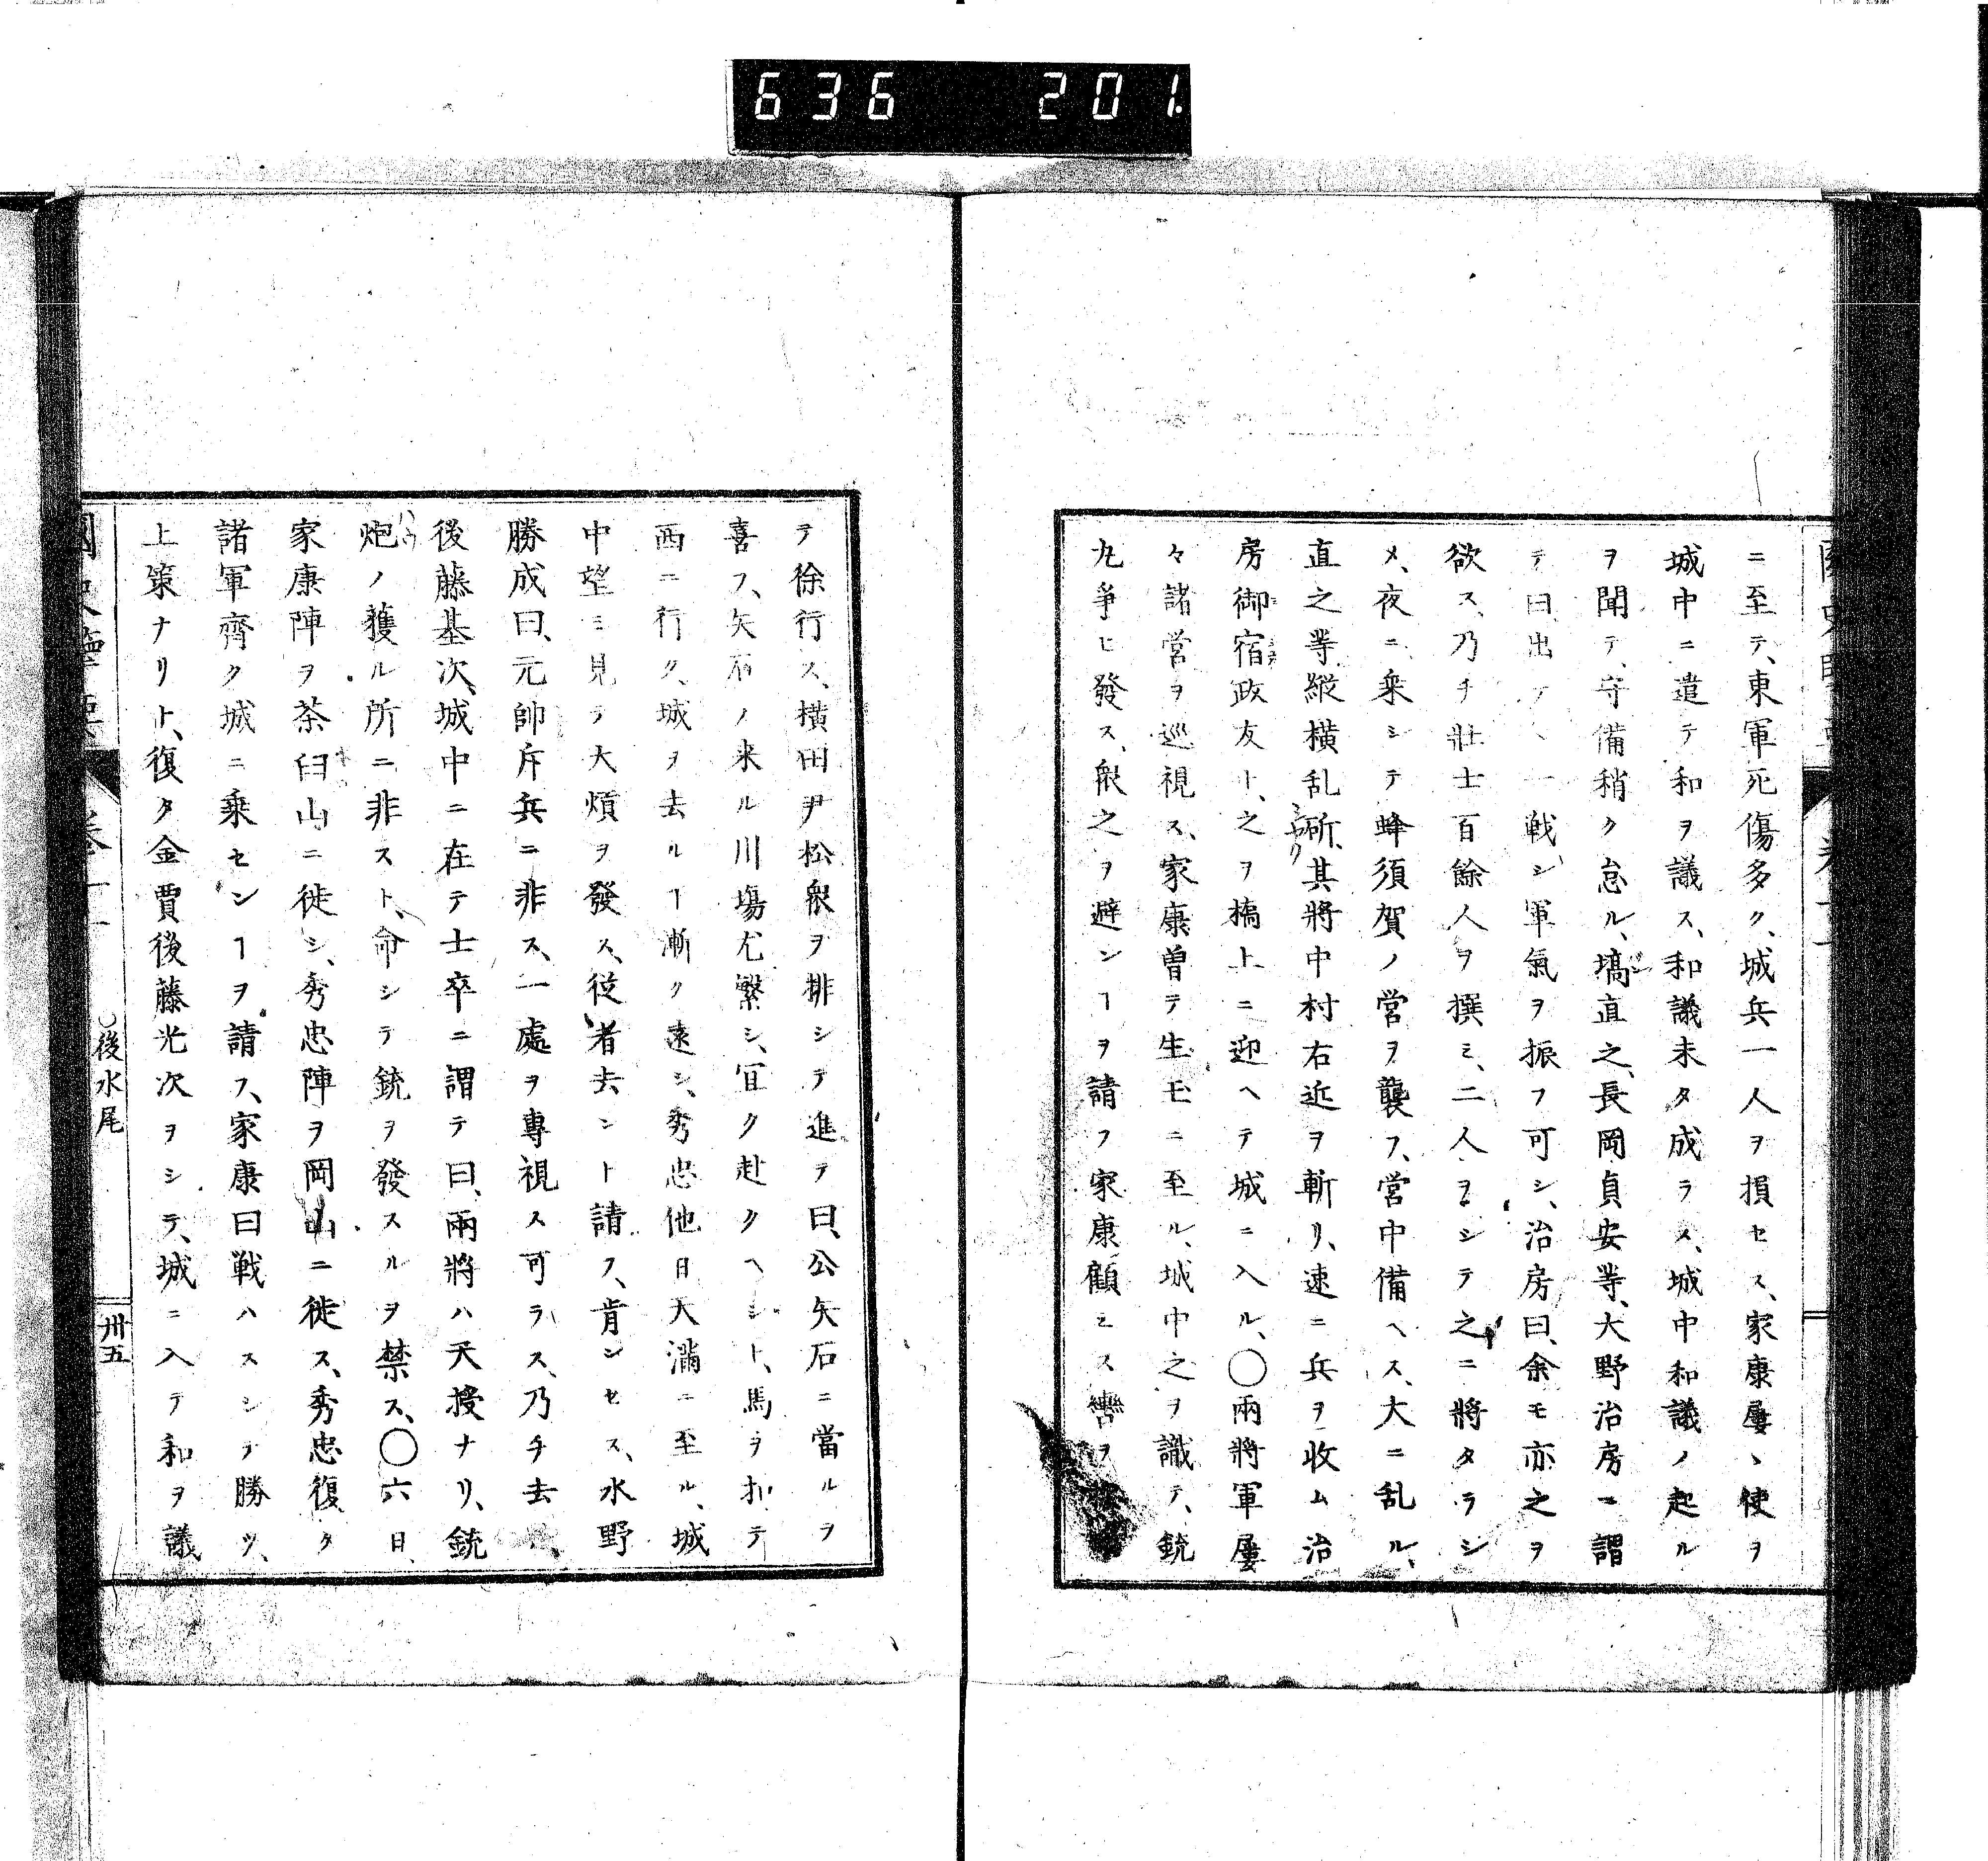 636 201
ニ至テ、東軍死傷多ク、城兵一人ヲ損セス、家康屢〻使ヲ
城中ニ遣テ和ヲ議ス、和議未タ成ラス、城中和議ノ起ル
ヲ聞テ、守備稍ク怠ル、塙直之、長岡貞安等、大野治房ニ謂
テ曰、出テヽ一戦シ軍氣ヲ振フ可シ、治房曰、余モ亦之ヲ
欲ス、乃チ壯士百餘人ヲ撰ミ、二人ヲシテ之ニ將タラシ
メ、夜ニ乗シテ蜂須賀ノ営ヲ襲フ、営中備ヘス、大ニ乱ル、
直之等縦横乱斫、其將中村右近ヲ斬リ、速ニ兵ヲ收ム治
房御宿政友ト、之ヲ橋上ニ迎ヘテ城ニ入ル、〇兩將軍屢
々諸営ヲ巡視ス、家康曽テ生玉ニ至ル、城中之ヲ識テ、銃
丸爭ヒ發ス、衆之ヲ避ンヿヲ請フ家康顧ミス轡ヲ
テ徐行ス、横田尹松衆ヲ排シテ進テ曰、公矢石ニ當ルヲ
喜フ、矢石ノ来ル川場尤繁シ、宜ク赴クヘシト、馬ヲ扣テ
西ニ行ク、城ヲ去ルヿ漸ク遠シ、秀忠他日天滿ニ至ル、城
中望ミ見テ大熕ヲ發ス、従者去ント請フ、肯ンセス、水野
勝成曰、元帥斥兵ニ非ス、一處ヲ専視ス可ラス、乃チ去ル、
後藤基次、城中ニ在テ士卒ニ謂テ曰、兩將ハ天授ナリ、銃
炮ノ獲ル所ニ非スト、命シテ銃ヲ發スルヲ禁ス、〇六日、
家康陣ヲ茶臼山ニ徙シ、秀忠陣ヲ岡山ニ徙ス、秀忠復タ
諸軍齊ク城ニ乗センヿヲ請フ、家康曰戦ハスシテ勝ツ、
上策ナリト、復タ金賈後藤光次ヲシテ、城ニ入テ和ヲ議
〇後水尾
卅五